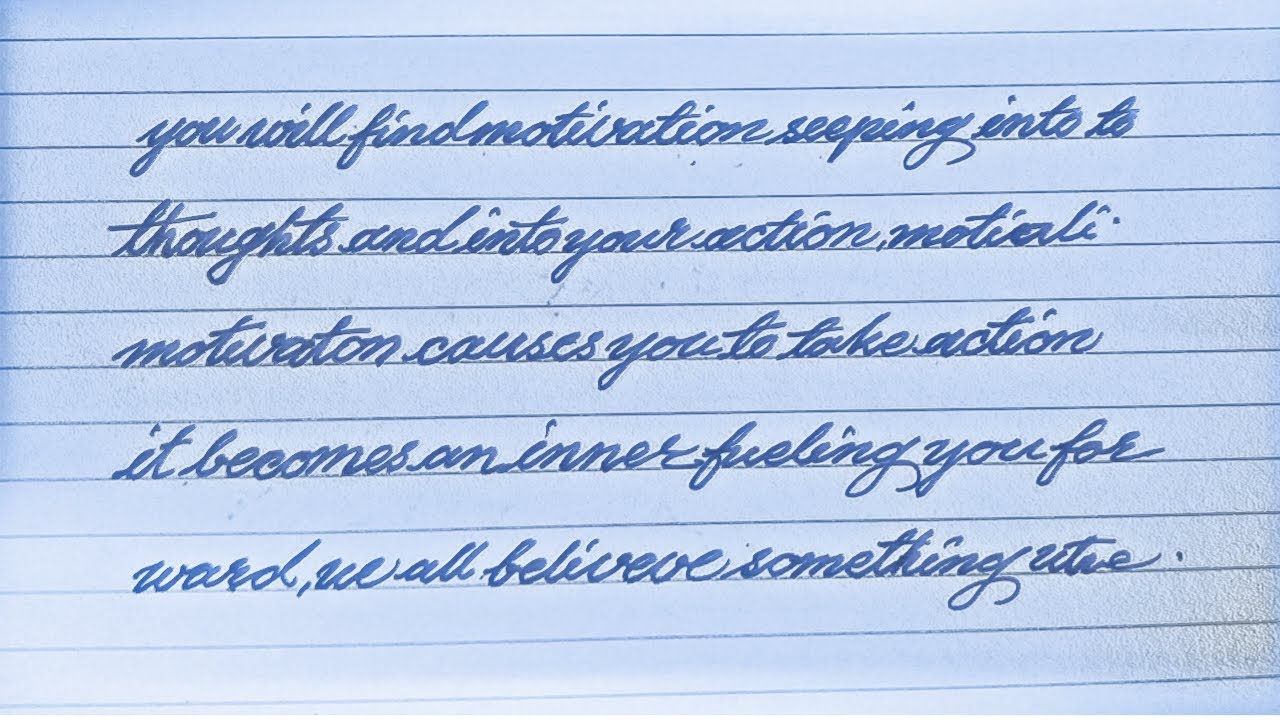 you will find motivation seeping into to
thoughts and into your action, motivati
motivaton causes you to take action
it becomes an inner fueling you for
ward, we all beliveve something